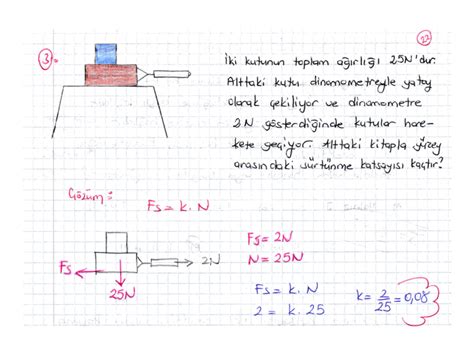 22
3.
İki kutunun toplam ağırlığı 25N'dur.
Alttaki kutu dinamometreyle yatay
olarak çekiliyor ve dinamometre
2N gösterdiğinde kutular hare-
kete geçiyor. Alttaki kitapla yüzey
arasındaki sürtünme katsayısı kaçtır?
Çözüm:
Fs = k. N
Fs
25N
2N
Fs = 2N
N = 25N
Fs = k. N
2 = k. 25
k = 2/25 = 0,08